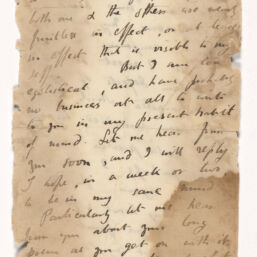 with one of the others are nearly
fruitless in effect, or at least
no effect that is visible to my
self. But I am too
egotistical, and have probably
no business at all to write
to you in my present habit
of mind. Let me hear from
you soon, and I will reply
I hope, in a week or two
to be in my sane mind.
Particularly let me hear
from you about your long
poem as you get on with it